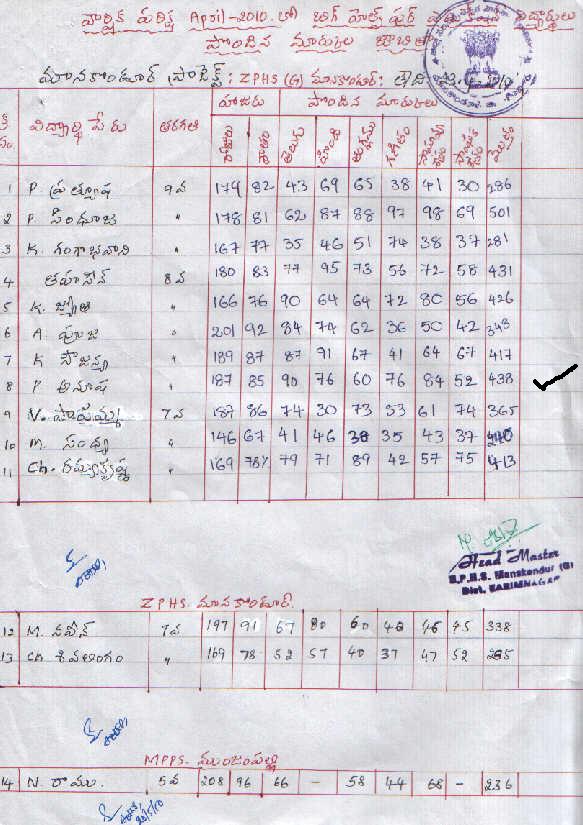 వార్షిక పరీక్ష April-2010 లో బిగ్ హెల్ప్ ఫర్ విద్యార్థులు
పొందిన మార్కుల
మానకొండూర్ ప్రాజెక్ట్: ZPHS (G) మానకొండూర్:
హాజరు పొందిన మార్కులు
క్ర సం. విద్యార్థి పేరు తరగతి హాజరు శాతం తెలుగు హిందీ ఆంగ్లము గణితం సామాన్య శాస్త్రం సాంఘిక శాస్త్రం మొత్తం
1 P. ప్రత్యూష 9వ 179 82 43 69 65 38 41 30 286
2 P. సింధూజ " 178 81 62 87 88 97 98 69 501
3 K. గంగాభవాని " 167 77 35 46 51 74 38 37 281
4 తహసీన్ 8వ 180 83 77 95 73 56 72 58 431
5 K. జ్యోతి " 166 76 90 64 64 72 80 56 426
6 A. పూజ " 201 92 84 74 62 36 50 42 348
7 K సౌజన్య " 189 87 87 91 67 41 64 67 417
8 P అనూష " 187 85 90 76 60 76 84 52 438
9 N. పోషమ్మ 7వ 187 86 74 30 73 53 61 74 365
10 M. సంధ్య " 146 67 41 46 38 35 43 37 240
11 Ch. రమ్యకృష్ణ " 169 78% 79 71 89 42 57 75 413
Head Master
Z.P.H.S. Manakondur (G)
Dist. KARIMNAGAR
ZPHS. మానకొండూర్.
12 M. నవీన్ 7వ 197 91 67 80 60 46 46 45 338
13 Ch. శివలింగం " 169 78 52 57 40 37 47 52 285
MPPS. ముంజంపల్లి
14 N. రాము. 5వ 208 96 66 - 58 44 68 - 236